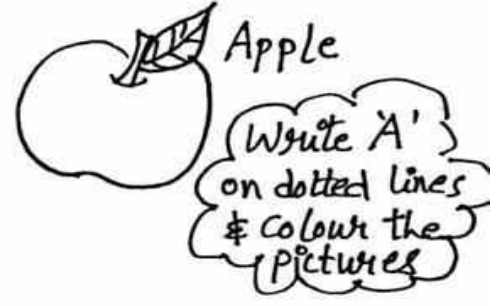 Apple
Write 'A'
on dotted lines
& colour the
pictures